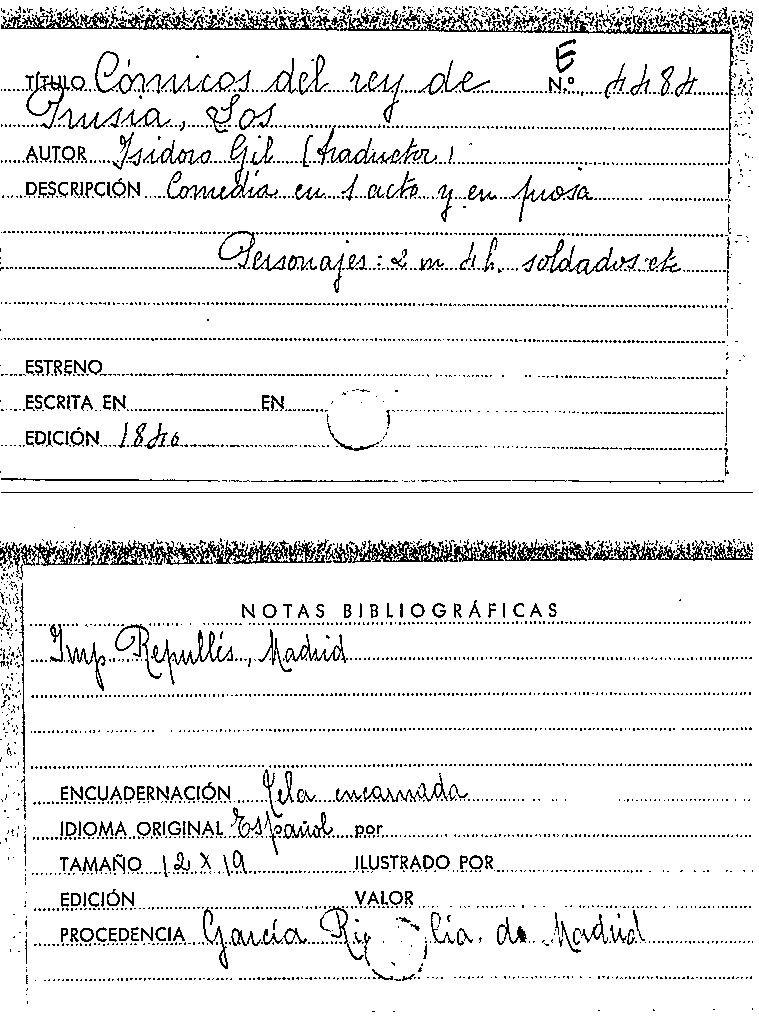 E
TÍTULO Cómicos del rey de N.º 4484
Prusia, Los
AUTOR Isidoro Gil (traductor)
DESCRIPCIÓN Comedia en 1 acto y en prosa
Personajes: 2 m 4 h. soldados etc
ESTRENO
ESCRITA EN EN
EDICIÓN 1840
NOTAS BIBLIOGRÁFICAS
Imp. Repullés, Madrid
ENCUADERNACIÓN Tela encarnada
IDIOMA ORIGINAL Español por
TAMAÑO 12 X 19 ILUSTRADO POR
EDICIÓN VALOR
PROCEDENCIA García Ri lia. de Madrid